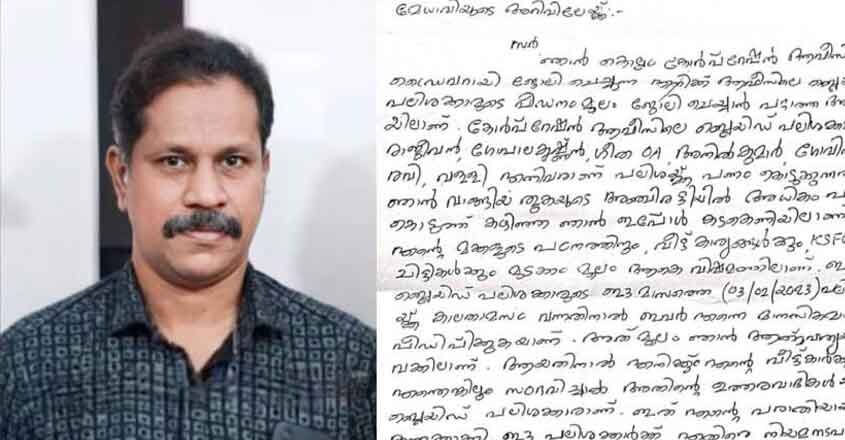 മേധാവിയുടെ അറിവിലേയ്ക്ക് :-
സർ
ഞാൻ കൊല്ലം കോർപ്പറേഷൻ ആഫീസ്
ഡ്രൈവറായി ജോലി ചെയ്യുന്ന എനിക്ക് ആഫീസിലെ ബ്ലെയ്
പലിശക്കാരുടെ പീഡനംമൂലം ജോലി ചെയ്യാൻ പറ്റാത്ത അ
യിലാണ്. കോർപ്പറേഷൻ ആഫീസിലെ ബ്ലെയിഡ് പലിശക്ക
രാജീവൻ, ഗോപാലകൃഷ്ണൻ, ഗീത OA, അനിൽകുമാർ, ഗോവി
രവി, വള്ളി എന്നിവരാണ് പലിശയ്ക്ക് പണം കൊടുക്കുന്നത
ഞാൻ വാങ്ങിയ തുകയുടെ അഞ്ചിരട്ടിയിൽ അധികം പ
കൊടുത്ത് കഴിഞ്ഞ ഞാൻ ഇപ്പോൾ കടക്കെണിയിലാണ്
എന്റെ മക്കളുടെ പഠനത്തിനും, വീട്ട് കാര്യങ്ങൾക്കും, KSF
ചിട്ടികൾക്കും മുടക്കം മൂലം ആകെ വിഷമത്തിലാണ്. ഇ
ബ്ലെയിഡ് പലിശക്കാരുടെ ഇരുമാസത്തെ (03/02/2023) പല
യ്ക്ക് കാലതാമസം വന്നതിനാൽ ഇവർ എന്നെ മാനസികമാ
പീഡിപ്പിക്കുകയാണ്. അത് മൂലം ഞാൻ ആത്മഹത്യയ
വക്കിലാണ്. ആയതിനാൽ എനിക്കും എന്റെ വീട്ട്കാർക്ക
എന്തെങ്കിലും സംഭവിച്ചാൽ അതിന്റെ ഉത്തരവാദികൾ
ബ്ലെയിഡ് പലിശക്കാരാണ്. ഇത് എന്റെ പരാതിയാ
കണക്കാക്കി ഈ പലിശക്കാർക്ക് എതിരെ നിയമനടപ